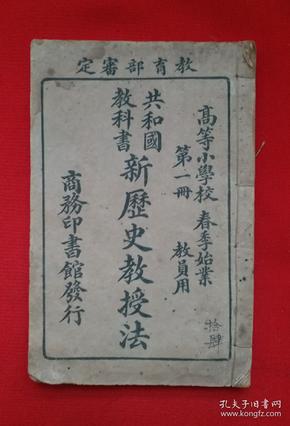 教育部審定
高等小學校 春季始業
第一冊 教員用
共和國
教科書
新歷史教授法
商務印書館發行
拾肆
孔夫子旧书网